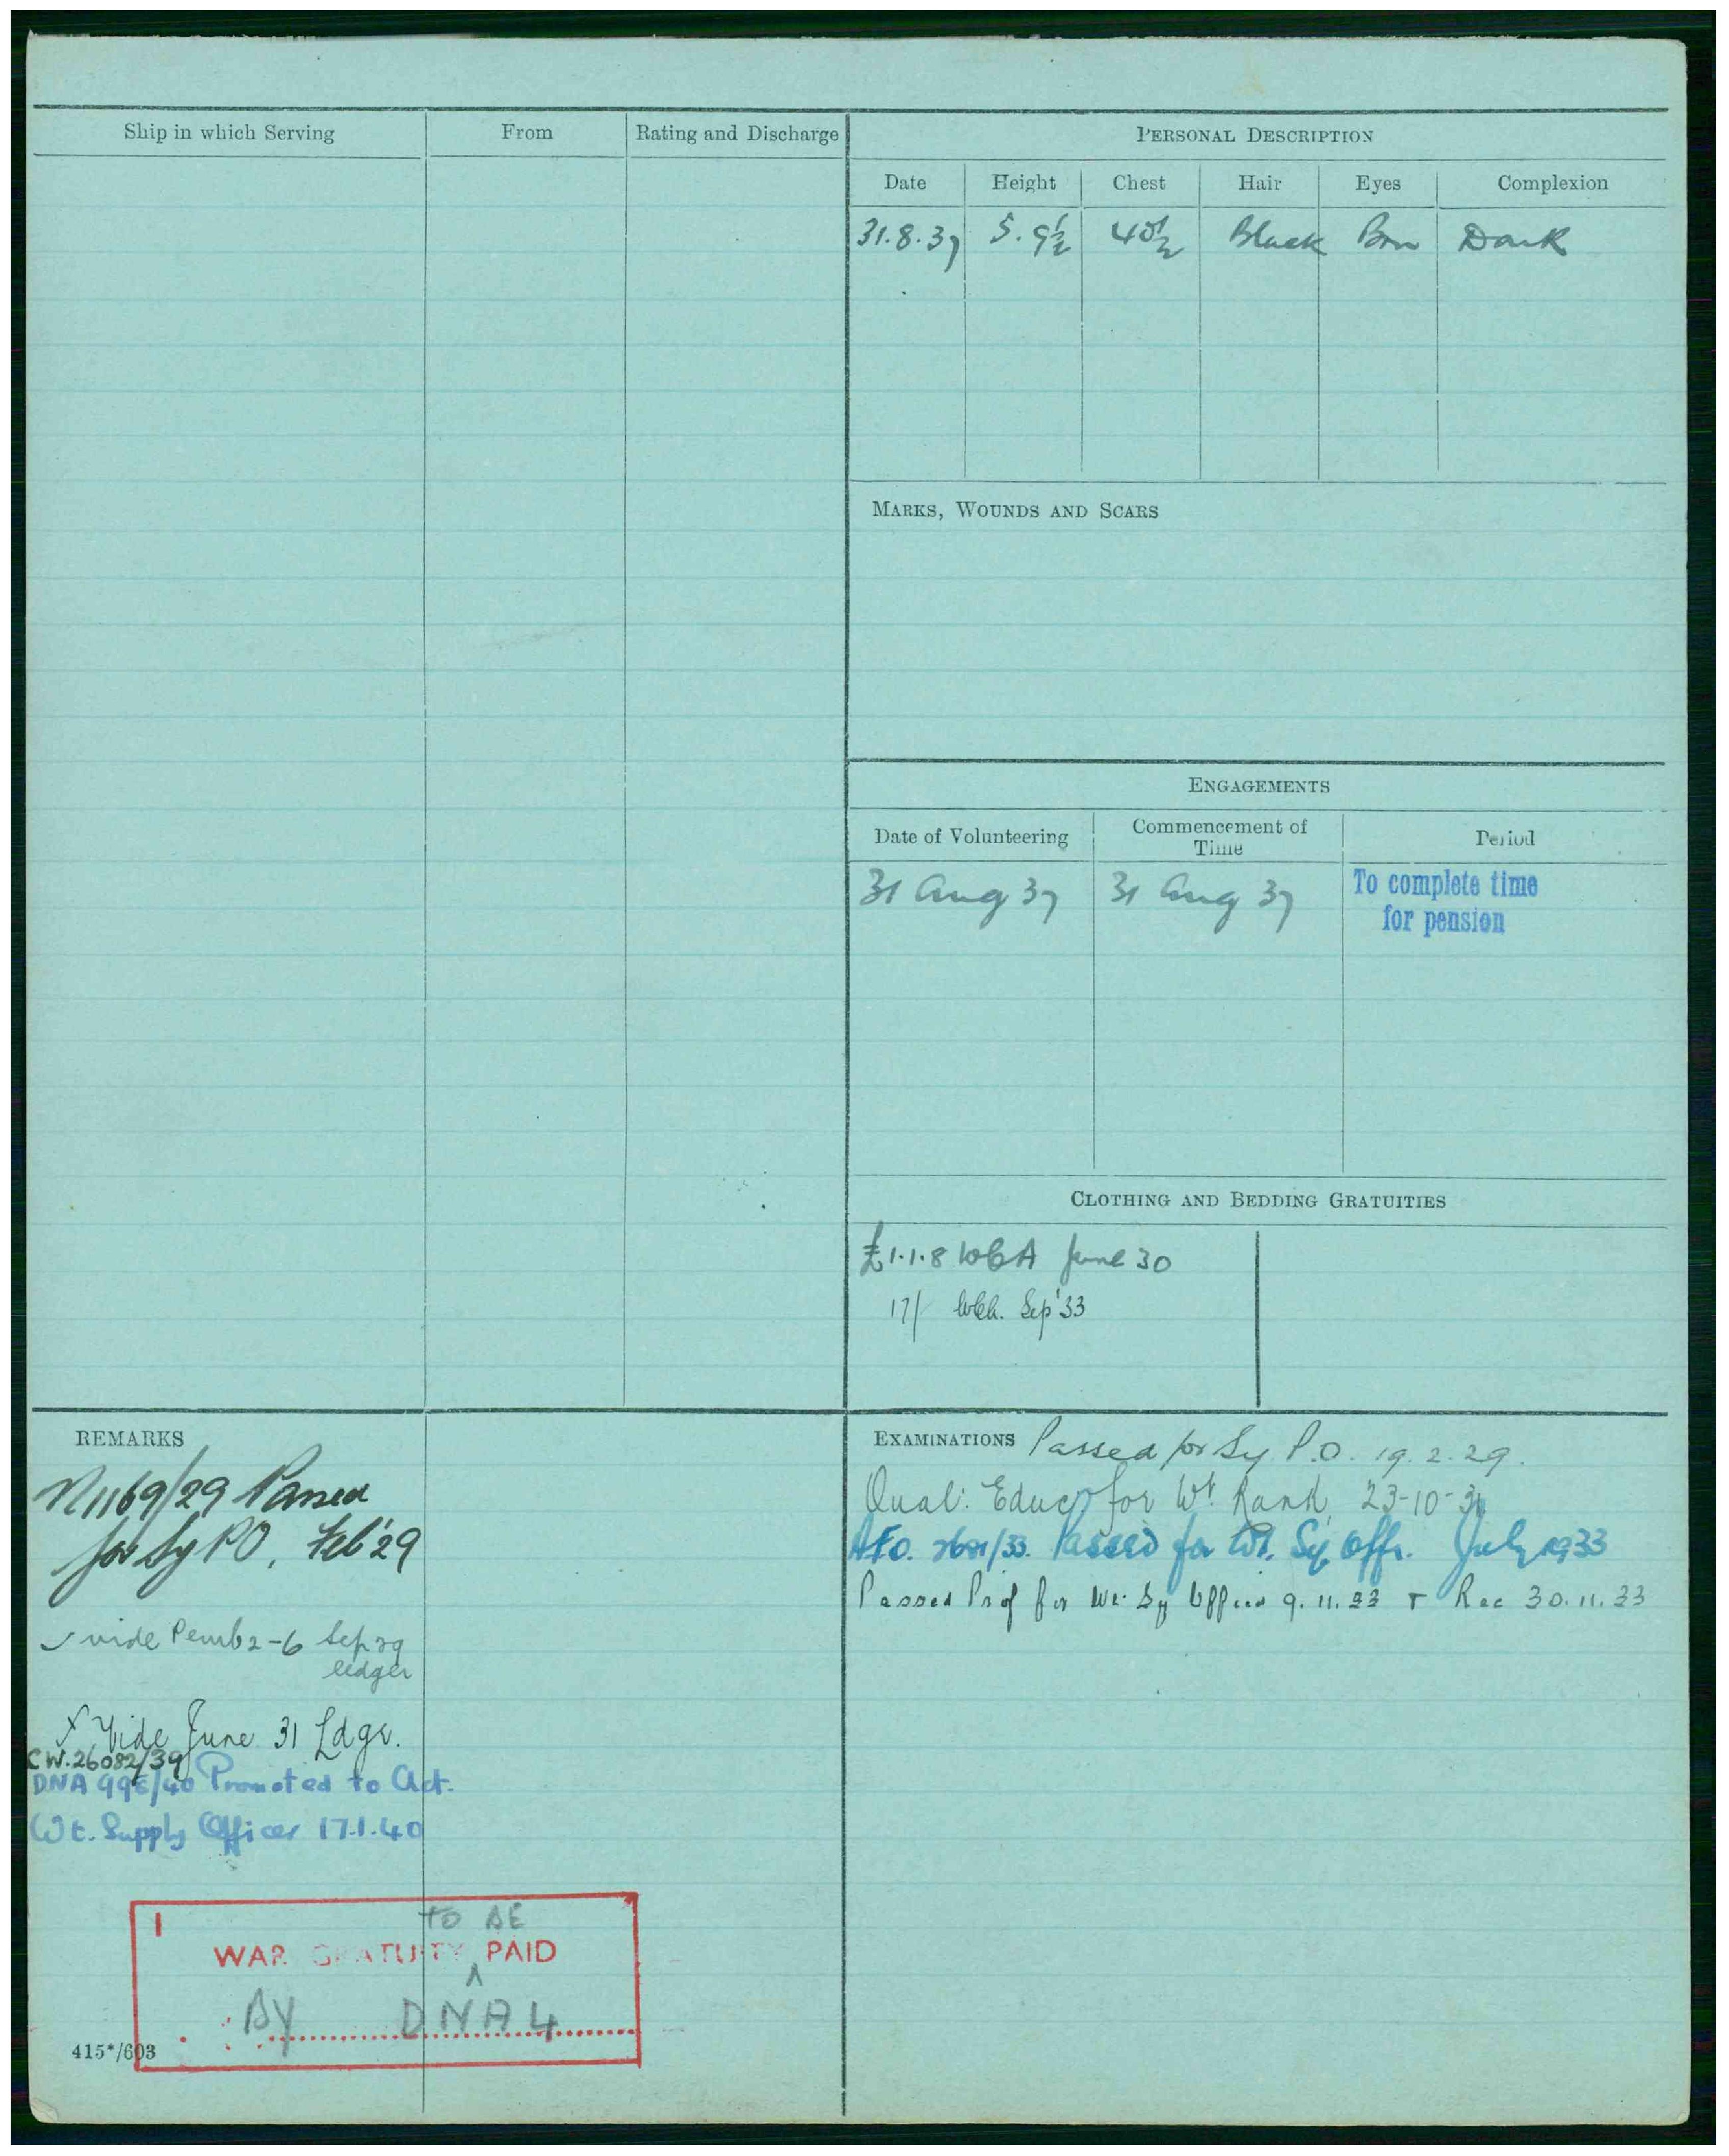 Ship in which Serving From Rating and Discharge
PERSONAL DESCRIPTION
Date Height Chest Hair Eyes Complexion
31.8.37 5.9½ 40½ Black Brn Dark
MARKS, WOUNDS AND SCARS
ENGAGEMENTS
Date of Volunteering Commencement of Time Period
31 Aug 37 31 Aug 37 To complete time
for pension
CLOTHING AND BEDDING GRATUITIES
£1.1.8 WCA June 30
17/- Sep '33
REMARKS
1169/29 Passed
for Sy PO, Feb '29
vide Pemb 2-6 Sep 29
ledger
x Vide June 31 Ldgr.
CW.26082/39
DNA /40 Promoted to Act.
Wt. Supply Officer 17.1.40
TO BE
WAR GRATUITY PAID
BY DNA 4
415*/603
EXAMINATIONS Passed for Sy P.O. 19.2.29.
Qual: Educ for Wt Rank 23-10-
AFO. /33. Passed for Wt. Sy. Offr. July 1933
Passed Prof for Wt Sy Officer 9.11.33 + Rec 30.11.33